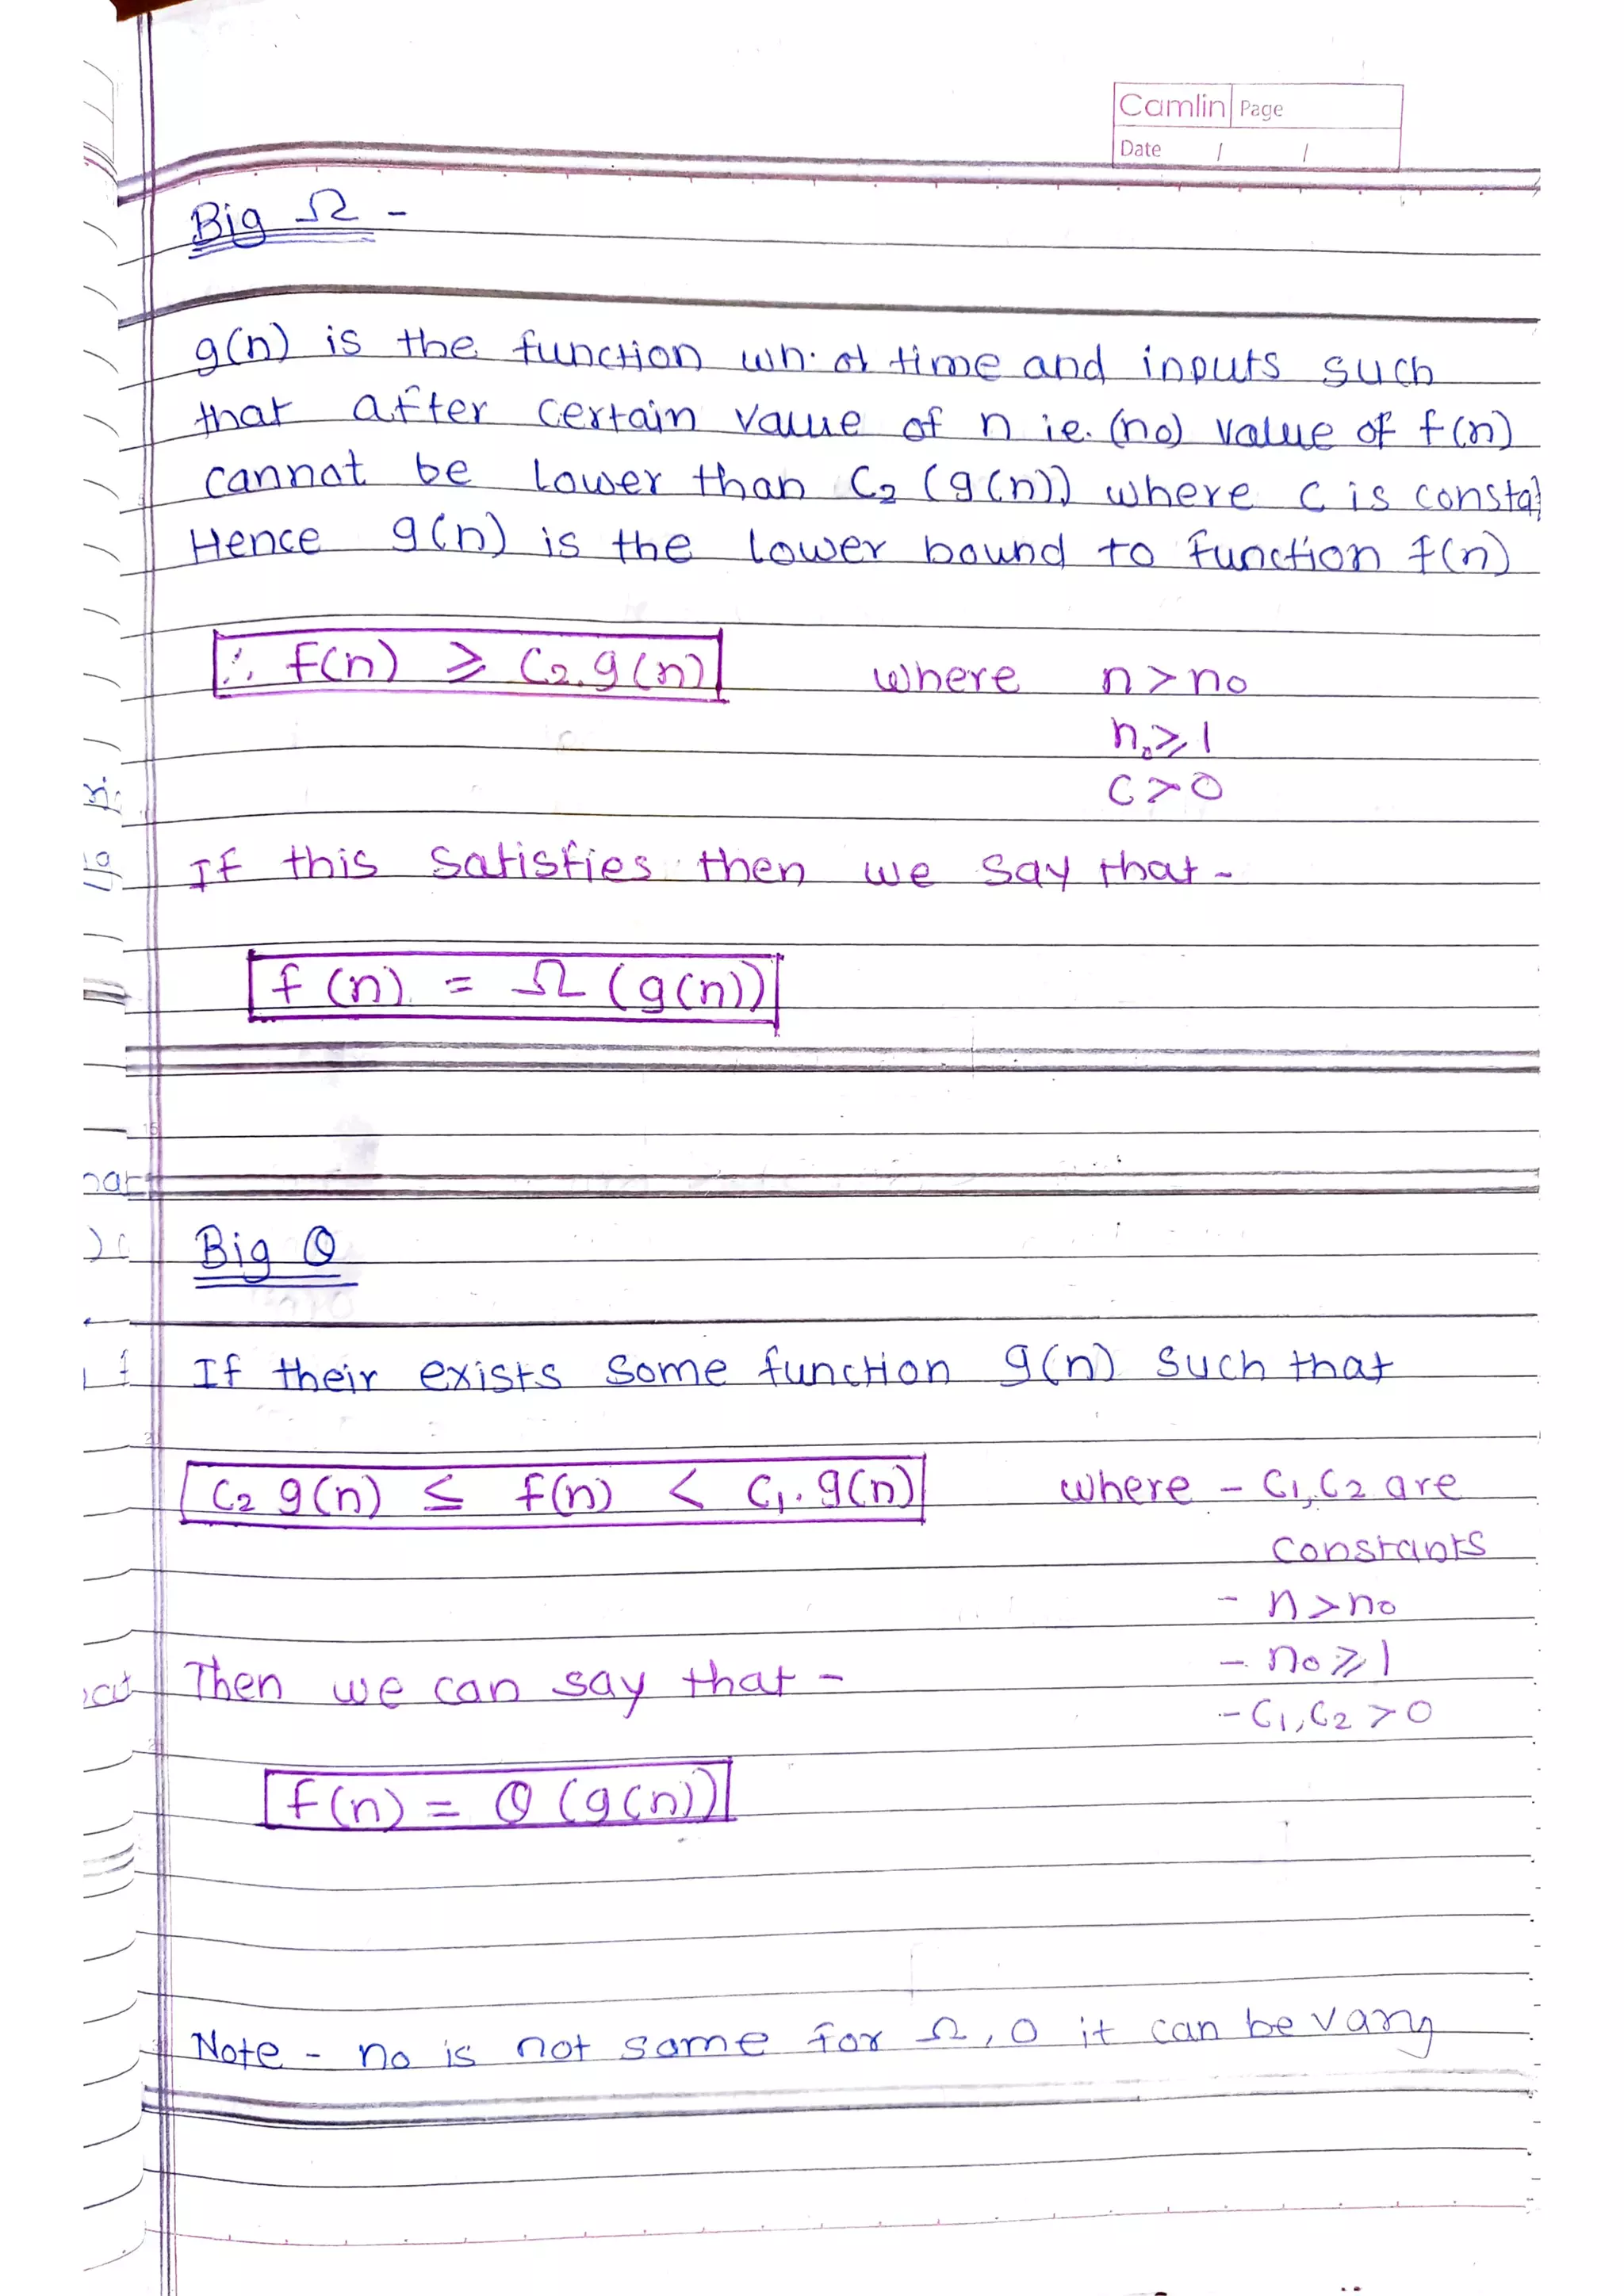 Camlin Page
Date / /
Big Ω -
g(n) is the function time and inputs such
that after certain value of n ie. (n0) value of f(n)
cannot be lower than C2 (g(n)) where c is consta
Hence g(n) is the lower bound to function f(n)
∴ f(n) ≥ C2.g(n) where n > n0
n0 ≥ 1
C > 0
If this satisfies then we say that -
f (n) = Ω (g(n))
Big Θ
If their exists some function g(n) such that
C2 g(n) ≤ f(n) < C1.g(n) where - C1, C2 are
constants
- n > n0
- n0 ≥ 1
Then we can say that -
- C1, C2 > 0
f(n) = Θ (g(n))
Note - n0 is not same for Ω, O it can be